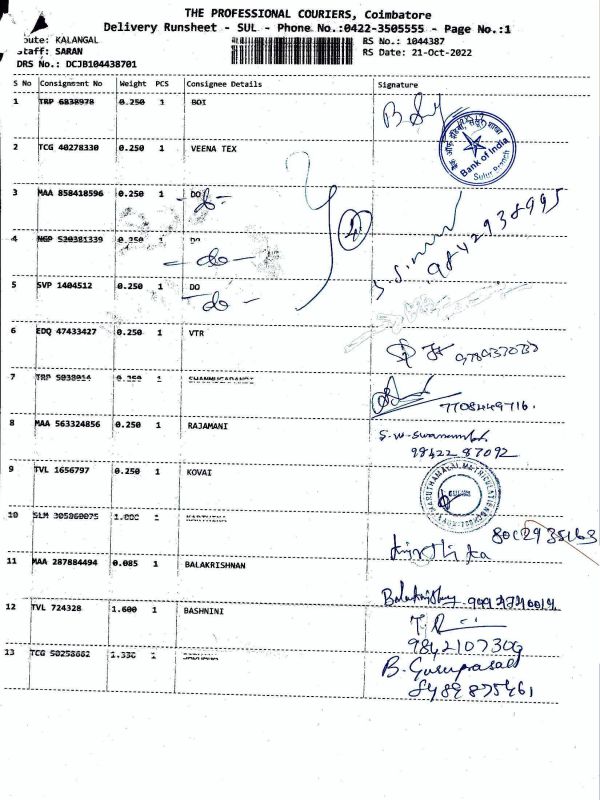 THE PROFESSIONAL COURIERS, Coimbatore
Delivery Runsheet - SUL - Phone No.:0422-3505555 - Page No.:1
oute: KALANGAL RS No.: 1044387
Staff: SARAN RS Date: 21-Oct-2022
DRS No.: DCJB104438701
S No Consignment No Weight PCS Consignee Details Signature
1 TRP 6838978 0.250 1 BOI
Bank of India
Sulur Branch
2 TCG 40278330 0.250 1 VEENA TEX
3 MAA 858418596 0.250 1 DO
9842938995
4 NGP 520381339 0.250 1 DO
- do -
5 SVP 1404512 0.250 1 DO
- do -
6 EDQ 47433427 0.250 1 VTR
7 TRP 5038014 0.250 1
7708449716.
8 MAA 563324856 0.250 1 RAJAMANI
98422 87092
9 TVL 1656797 0.250 1 KOVAI
10 SLM 305860075 1.000 1 KARTHIKA
11 MAA 287884494 0.085 1 BALAKRISHNAN
12 TVL 724328 1.600 1 BASHNINI
9842107309
13 TCG 50258682 1.330 1
B. Guruprasad
8489875461